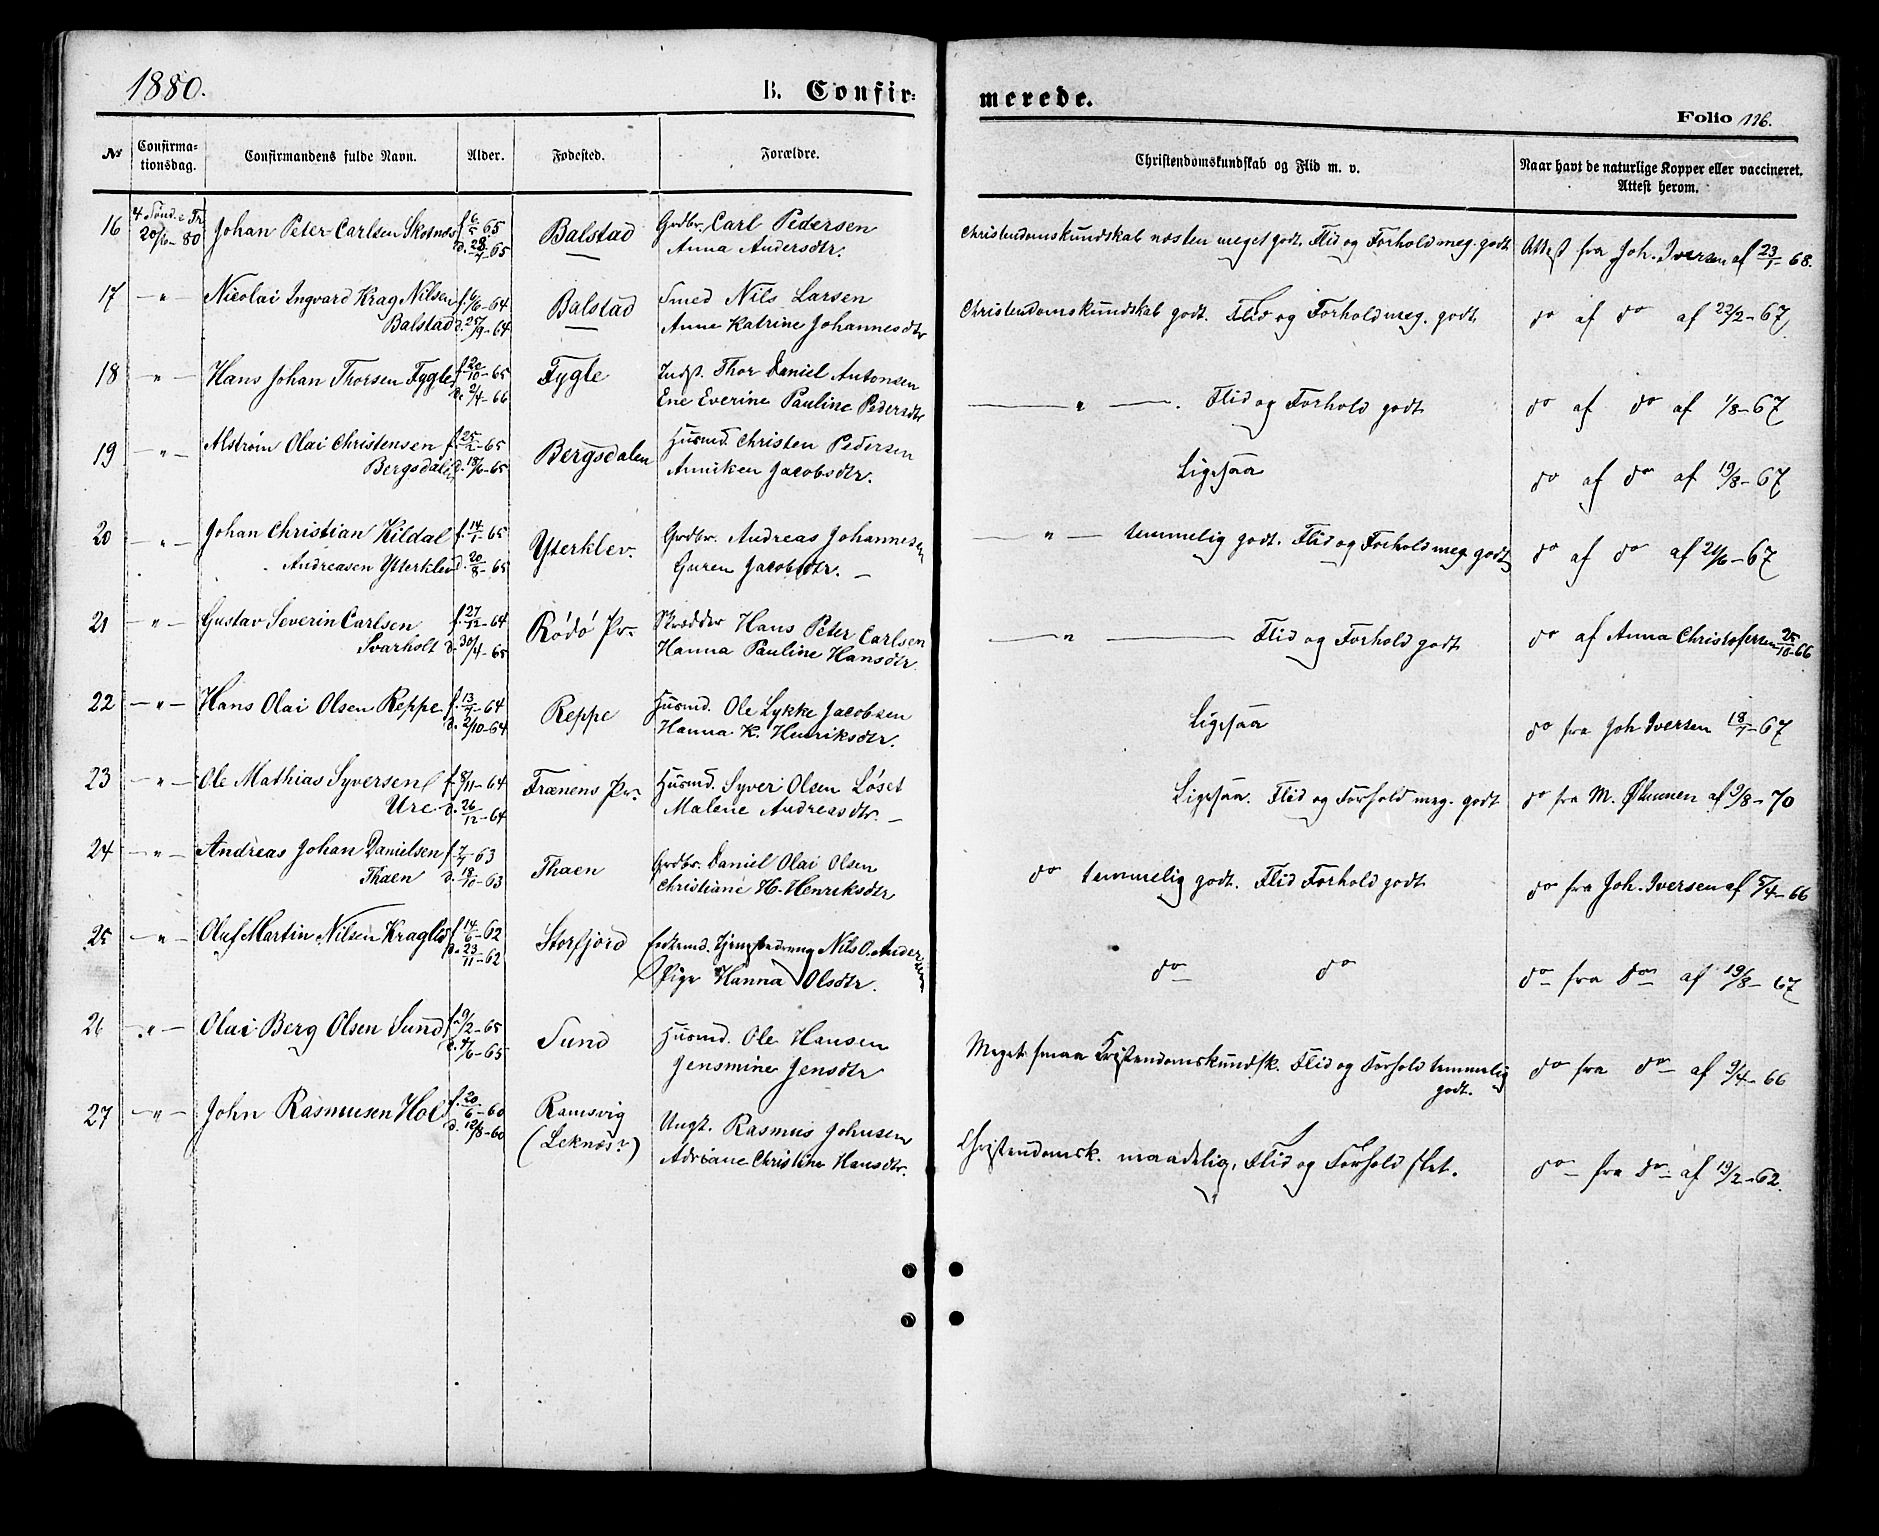 1880.
B. Confir-
merede.
Folio 116.
№ Confirma-tionsdag. Confirmandens fulde Navn. Alder. Fødested. Forældre. Christendomskundskab og Flid m. v. Naar havt de naturlige Kopper eller vaccineret. Attest herom.
16 4 Sønd. e. Tr. 20/6-80 Johan Peter Carlsen Skotnæs f. 6/5-65 d. 28/7-65 Balstad Grdbr. Carl Pedersen
Anna Andersdtr. Christendomskundskab næsten meget godt. Flid og Forhold meg. godt Attest fra Joh. Iversen af 23/7-68.
17 -"- Nicolai Ingvard Krag Nilsen f. 6/6-64 Balstad Smed Nils Larsen Christendomskundskab godt. Flid og Forhold meg. godt do af do af 22/2-67
Balstad d. 25/9-64 Anne Katrine Johannesdtr
18 -"- Hans Johan Thorsen Fygle f. 20/10-65 d. 2/4-66 Fygle Indst. Thor Daniel Antonsen
Ene Everine Pauline Pedersdtr -"-. Flid og Forhold godt do af do af 1/8-67
19 -"- Alstrøm Olai Christensen f. 25/2-65 Bergsdalen Husmd. Christen Pedersen
Bergsdalen d. 18/6-65 Anniken Jacobsdtr. Ligesaa do af do af 19/8-67
20 -"- Johan Christian Kildal f. 14/1-65 Ytterklev. Grdbr. Andreas Johannesen -"- temmelig godt. Flid og Forhold meg. godt do af do af 21/6-67
Andreasen Ytterklev d. 20/8-65 Guren Jacobsdtr.
21 -"- Gustav Severin Carlsen f. 27/12-64 Rödö Pr. Skrædder Hans Peter Carlsen -"- Flid og Forhold godt do af Anna Christofersen 25/10-66
Svarholt d. 30/4-65 Hanna Pauline Hansdtr.
22 -"- Hans Olai Olsen Reppe f. 13/7-64 d. 2/10-64 Reppe Husmd. Ole Lykke Jacobsen
Hanna K. Henriksdtr. Ligesaa do fra Joh Iversen 18/7-67
23 -"- Ole Mathias Syversen f. 8/11-64 Frænens Pr. Husmd. Syver Olsen Løset Ligesaa. Flid og Forhold meg. godt do fra M. af 9/8-70
Ure d. 26/12-64 Malene Andreasdtr.
24 -"- Andreas Johan Danielsen f. 7/7-63 Thaen Grdbr. Daniel Olai Olsen
Thaen d. 18/10-63 Christiane H. Henriksdtr do temmelig godt. Flid Forhold godt do fra Joh. Iversen af 5/4-66
25 -"- Oluf Martin Nilsen Kraglid f. 14/6-62 d. 23/11-62 Storfjord Enkemd. Tjenestedreng Nils O. Andersen
Pige Hanna Olsdtr. do do do fra do af 19/8-67
26 -"- Olai Berg Olsen Sund f. 9/2-65 d. 4/6-65 Sund Husmd. Ole Hansen
Jensmine Jensdtr Meget smaa Kristendomskundsk. Flid og Forhold temmelig godt. do fra do af 9/4-66
27 -"- John Rasmusen Hol f. 20/6-60 d. 12/8-60 Ramsvig (Leknæs?) Ungk. Rasmus Johnsen
Adriane Christine Hansdtr. Christendomsk. maadelig, Flid og Forhold slet. do fra do af 19/2-62.